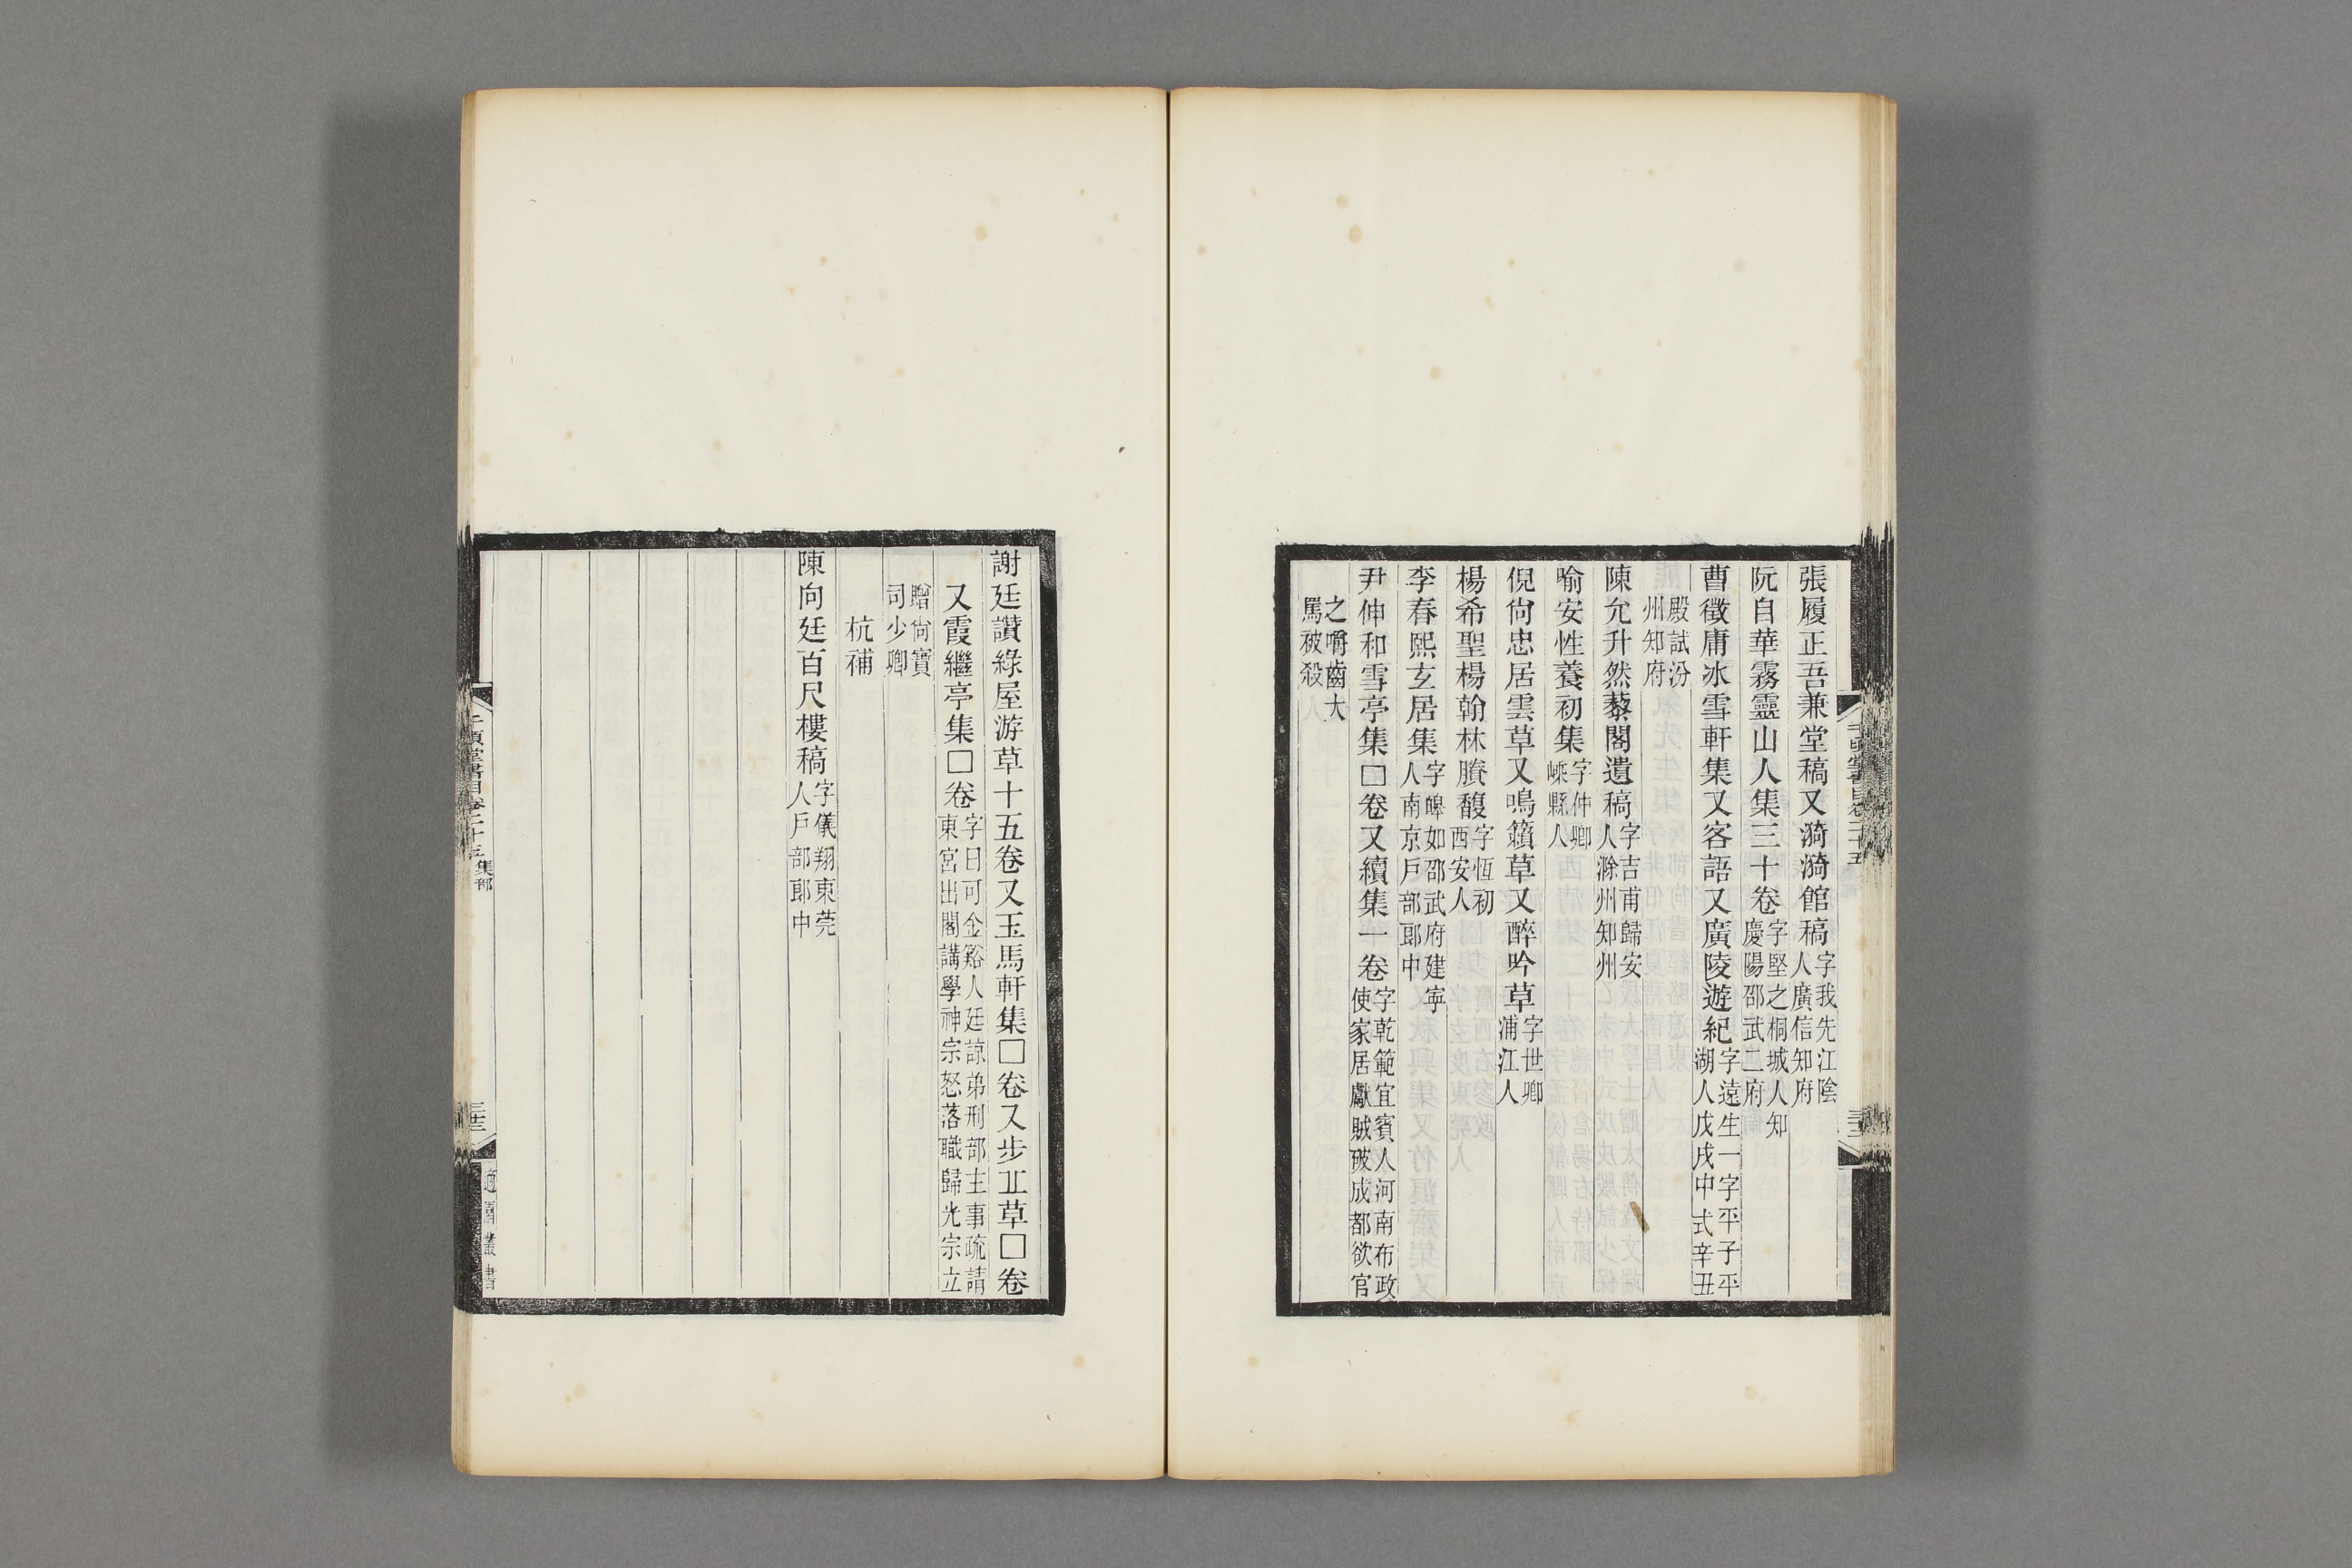 張履正吾兼堂稿又漪漪館稿字我先江陰人廣信知府
阮自華霧靈山人集三十卷字堅之桐城人知慶陽邵武二府
曹徵庸冰雪軒集又客語又廣陵遊紀字遠生一字平子平湖人戊戌中式辛丑
殿試汾州知府
陳允升然藜閣遺稿字吉甫歸安人滁州知州
喻安性養初集字仲卿嵊縣人
倪尙忠居雲草又鳴籟草又醉吟草字世卿浦江人
楊希聖楊翰林賸馥字恆初西安人
李春熙玄居集字皞如邵武府建寧人南京戶部郎中
尹伸和雪亭集□卷又續集一卷字乾範宜賓人河南布政使家居獻賊破成都欲官
之嚼齒大罵被殺
謝廷讚綠屋游草十五卷又玉馬軒集□卷又步丠草□卷
又霞繼亭集□卷字曰可金谿人廷諒弟刑部主事疏請東宮出閣講學神宗怒落職歸光宗立
贈尙寶司少卿
杭補
陳向廷百尺樓稿字儀翔東莞人戶部郎中
千頃堂書目卷二十五 集部
三十三
適園叢書